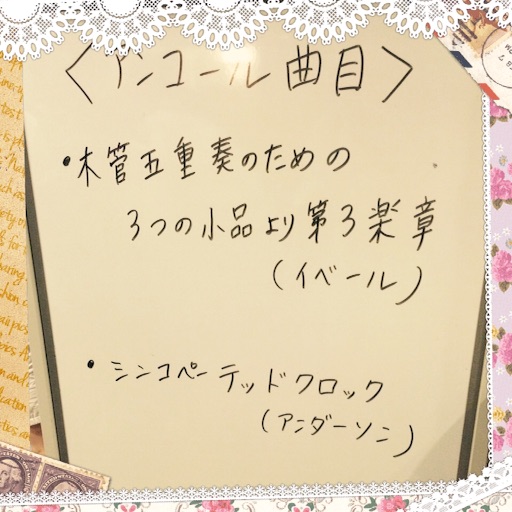 <アンコール曲目>
・木管五重奏のための
3つの小品より第3楽章
(イベール)
・シンコペーテッドクロック
(アンダーソン)